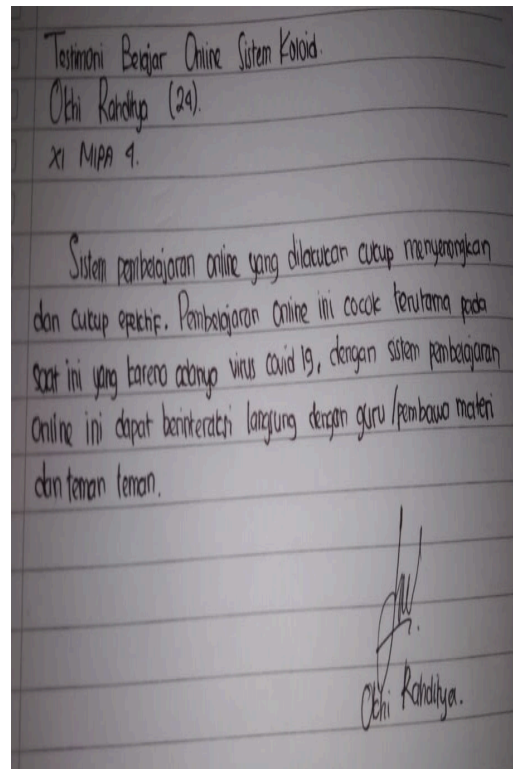 Testimoni Belajar Online Sistem Koloid.
Okhi Rahditya (24).
XI MIPA 4.
Sistem pembelajaran online yang dilakukan cukup menyenangkan
dan cukup efektif. Pembelajaran Online ini cocok terutama pada
saat ini yang karena adanya virus covid 19, dengan sistem pembelajaran
Online ini dapat berinteraksi langsung dengan guru /pembawa materi
dan teman teman.
Okhi Rahditya.